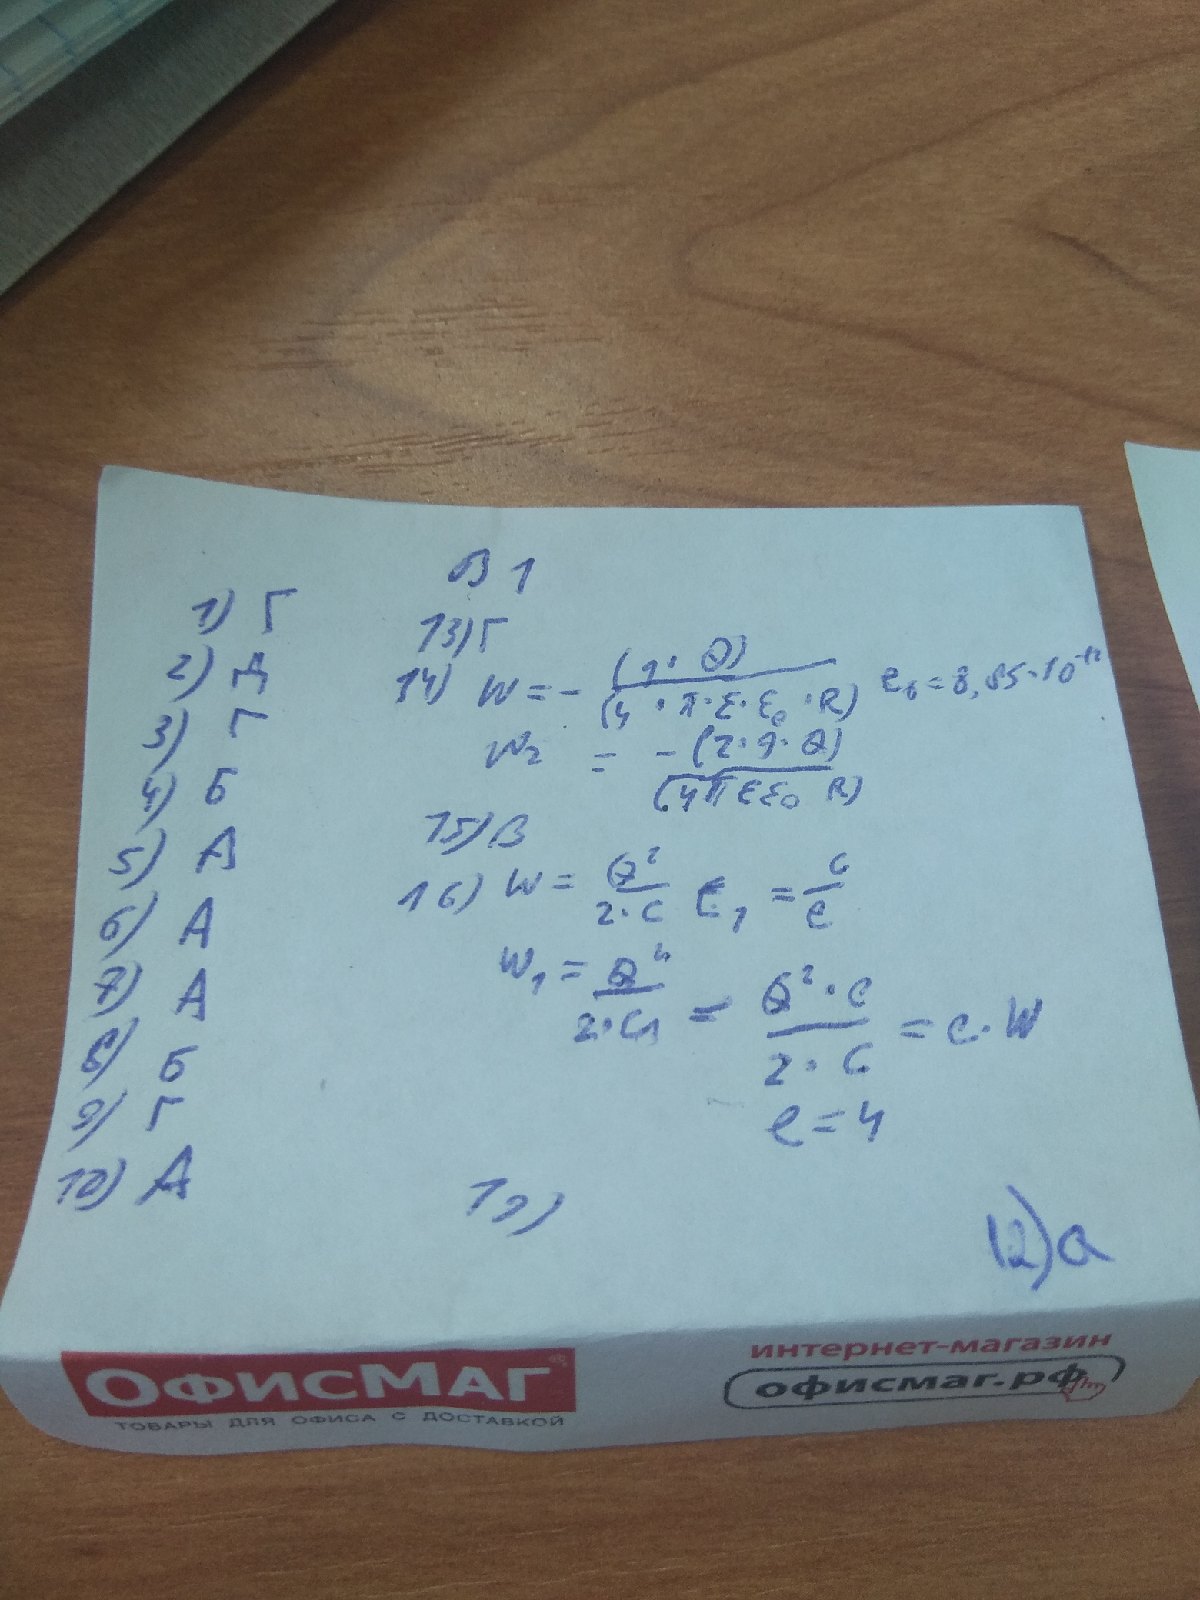 В 1
1) Г
2) Д
3) Г
4) Б
5) А
6) А
7) А
8) Б
9) Г
10) А
13) Г
14) W = - (q · Q) / (4 · π · ε · ε₀ · R) e₀ = 8,85 · 10⁻¹²
W₂ = -(2 · q · Q) / (4πεε₀ R)
15) В
16) W = Q² / 2·C C₁ = C / e
W₁ = Q² / 2·C₁ = Q² · e / 2 · C = e · W
e = 4
19)
12) а
ОФИСМАГ®
ТОВАРЫ ДЛЯ ОФИСА С ДОСТАВКОЙ
ИНТЕРНЕТ-МАГАЗИН
офисмаг.рф